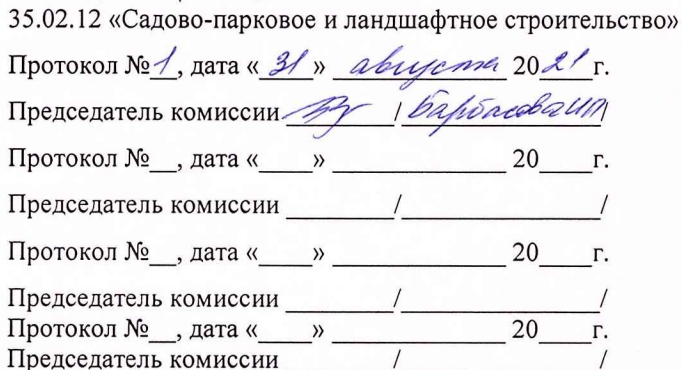 35.02.12 «Садово-парковое и ландшафтное строительство»
Протокол №1, дата «31» августа 2021г.
Председатель комиссии ________/ Барбасова И.П. /
Протокол №__, дата «____» ______________ 20____г.
Председатель комиссии ________/________________/
Протокол №__, дата «____» ______________ 20____г.
Председатель комиссии ________/________________/
Протокол №__, дата «____» ______________ 20____г.
Председатель комиссии ________/________________/